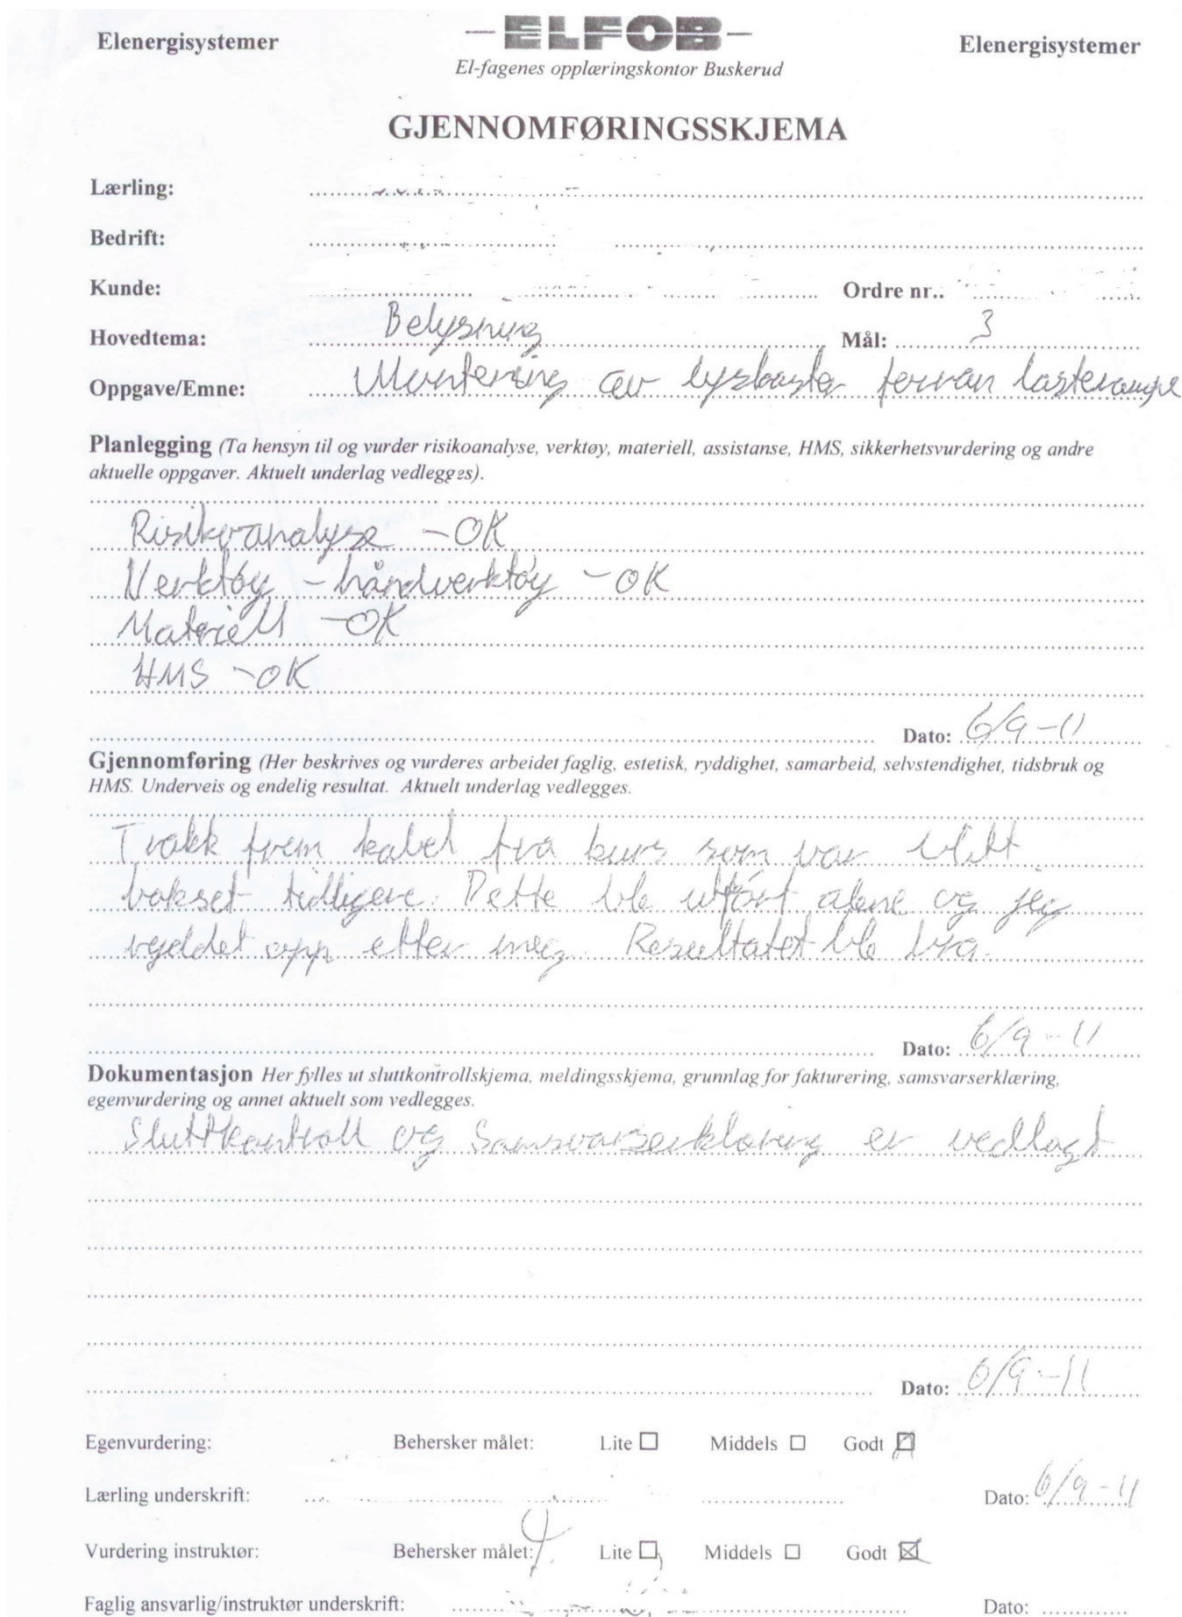 Elenergisystemer
ELFOB
Elenergisystemer
El-fagenes opplæringskontor Buskerud
GJENNOMFØRINGSSKJEMA
Lærling:
Bedrift:
Kunde: Ordre nr..
Hovedtema: Belysning Mål: 3
Oppgave/Emne: Montering av lyskaster foran lasterampe
Planlegging (Ta hensyn til og vurder risikoanalyse, verktøy, materiell, assistanse, HMS, sikkerhetsvurdering og andre
aktuelle oppgaver. Aktuelt underlag vedlegges).
Risikoanalyse - OK
Verktøy - håndverktøy - OK
Materiell - OK
HMS - OK
Dato: 6/9-11
Gjennomføring (Her beskrives og vurderes arbeidet faglig, estetisk, ryddighet, samarbeid, selvstendighet, tidsbruk og
HMS. Underveis og endelig resultat. Aktuelt underlag vedlegges.
Trakk frem kabel fra kurs som var blitt
bokset tidligere. Dette ble utført alene og jeg
ryddet opp etter meg. Resultatet ble bra.
Dato: 6/9-11
Dokumentasjon Her fylles ut sluttkontrollskjema, meldingsskjema, grunnlag for fakturering, samsvarserklæring,
egenvurdering og annet aktuelt som vedlegges.
Sluttkontroll og Samsvarserklæring er vedlagt
Dato: 6/9-11
Egenvurdering: Behersker målet: Lite Middels Godt
Lærling underskrift: Dato: 6/9-11
Vurdering instruktør: Behersker målet: Lite Middels Godt
Faglig ansvarlig/instruktør underskrift: Dato: